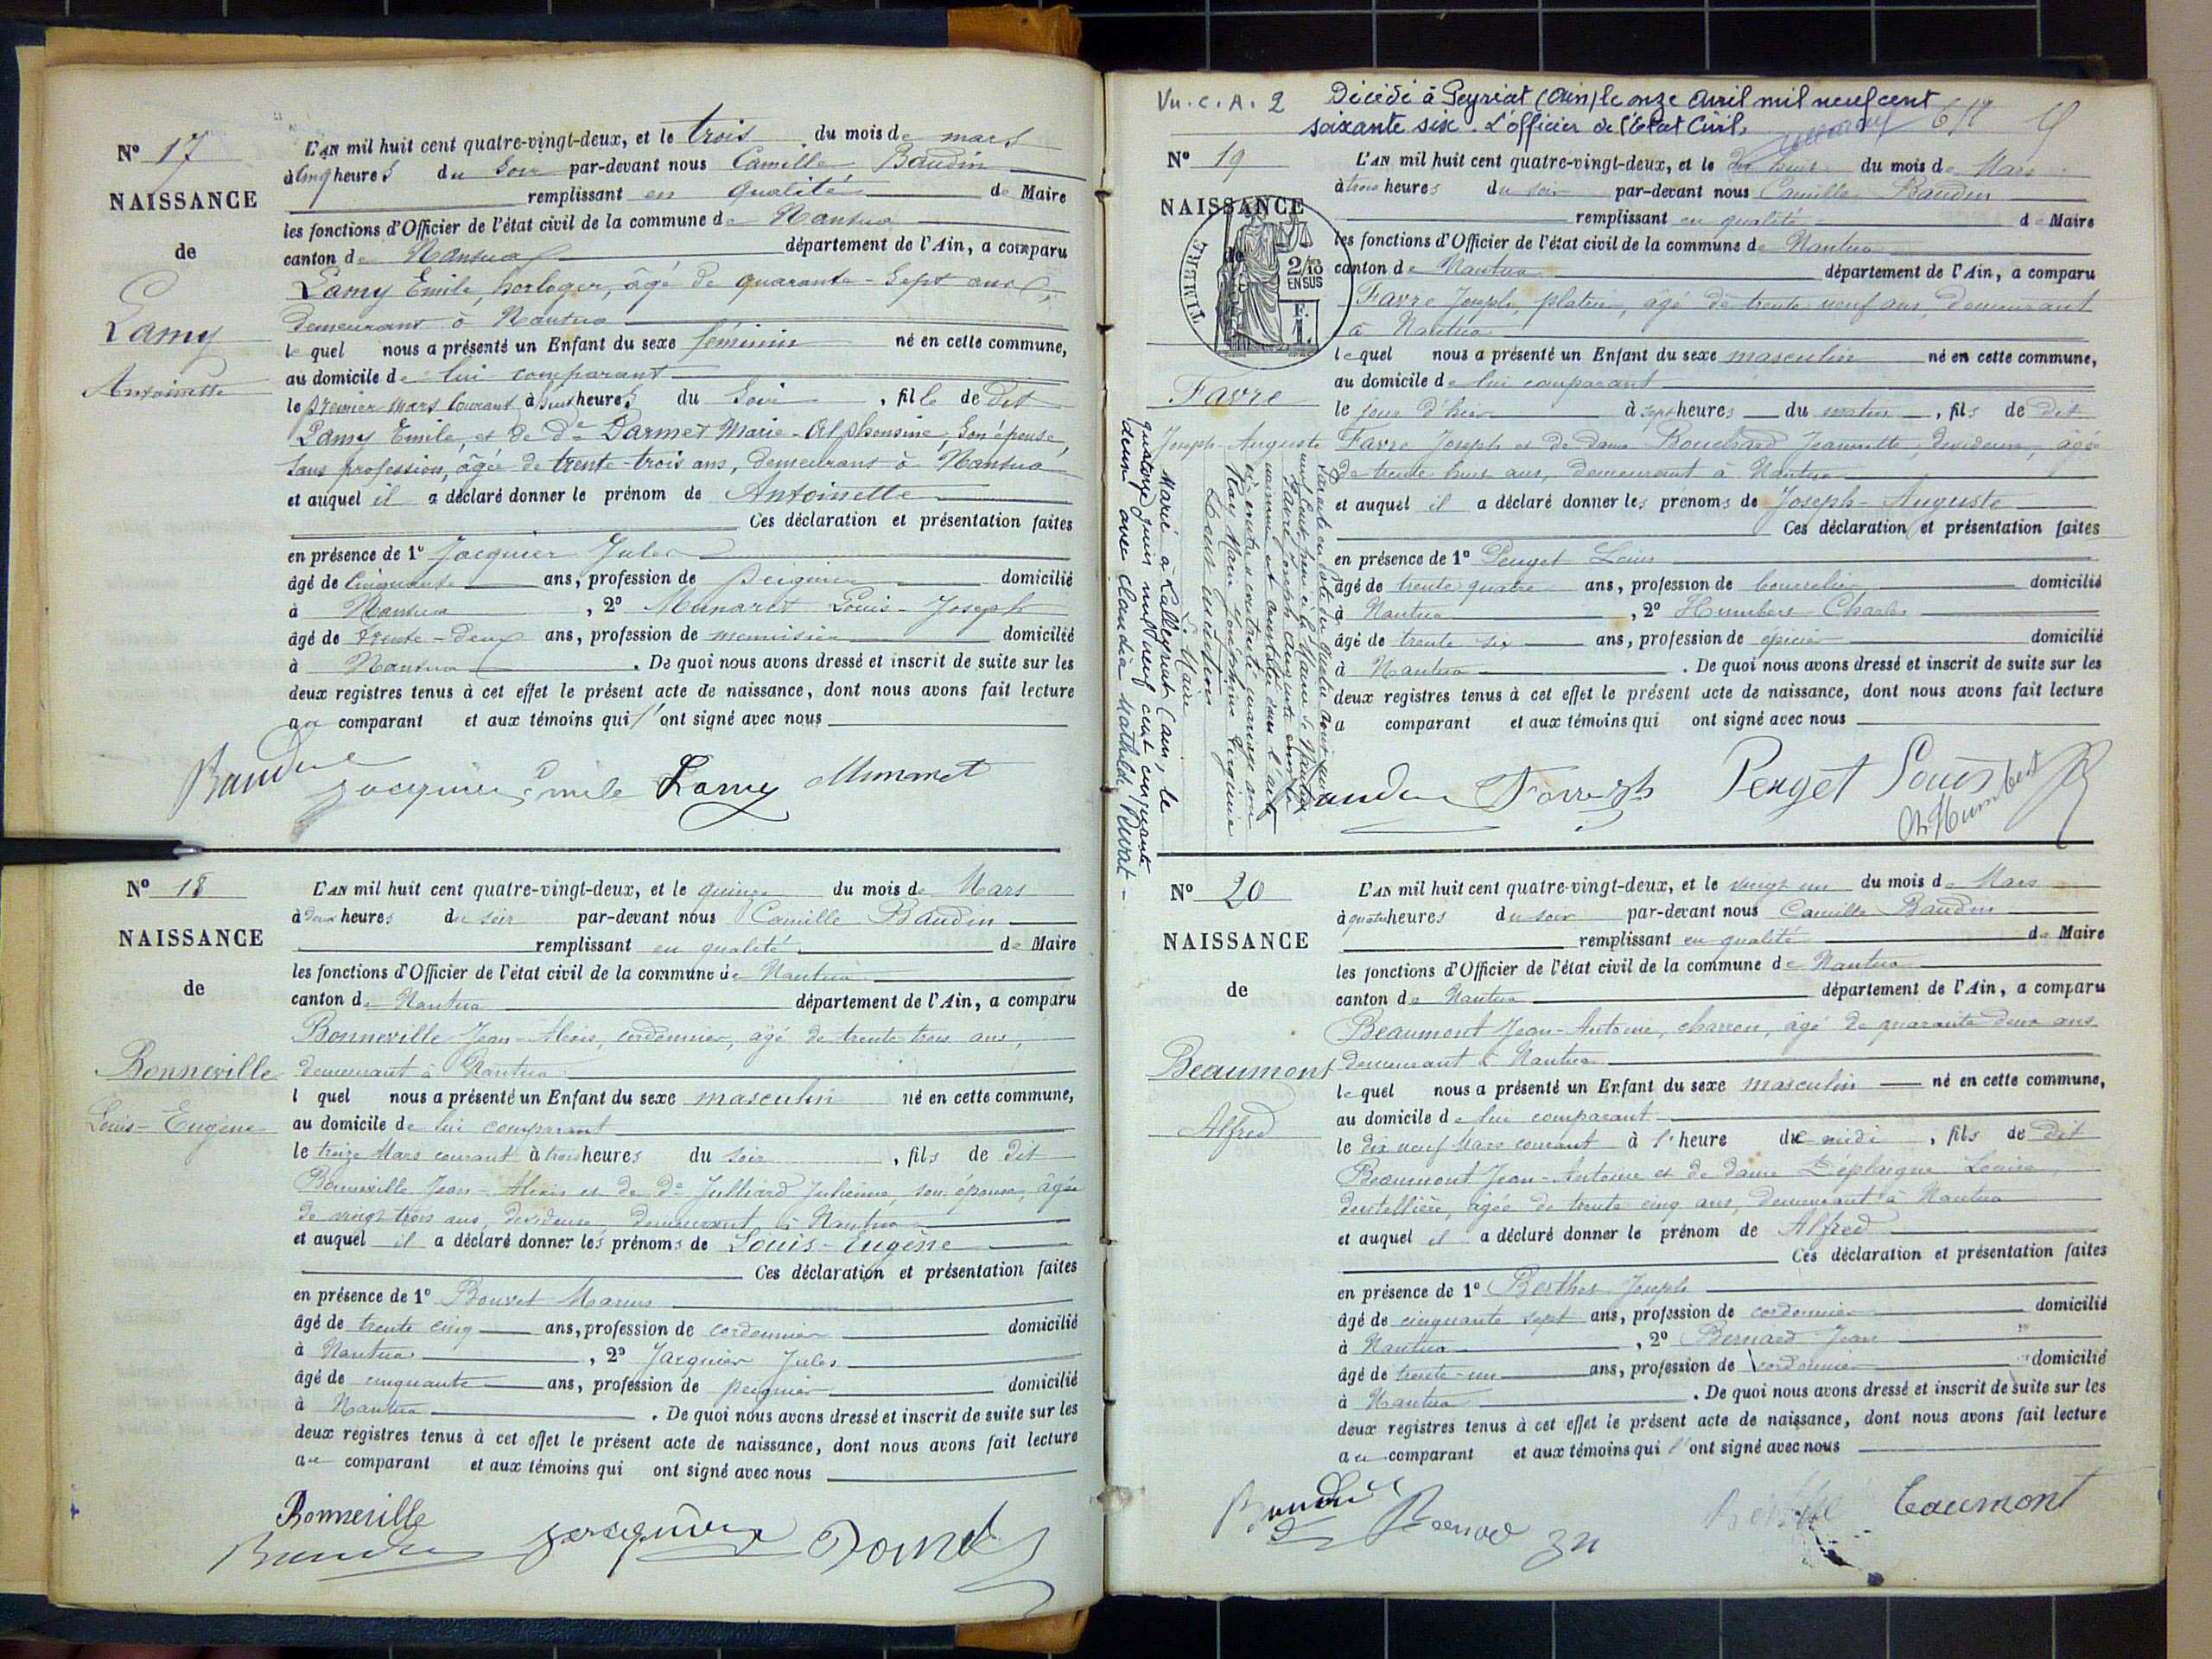 Nº 17
NAISSANCE
de
Lamy
Antoinette
L'AN mil huit cent quatre-vingt-deux, et le trois du mois de mars
à cinq heures du soir par-devant nous Camille Baudin
remplissant en qualité de Maire
les fonctions d'Officier de l'état civil de la commune de Nantua
canton de Nantua département de l'Ain, a comparu
Lamy Emile, horloger, âgé de quarante-sept ans,
demeurant à Nantua
lequel nous a présenté un Enfant du sexe féminin né en cette commune,
au domicile de lui comparant
le premier mars courant à huit heures du soir, fille de dit
Lamy Emile, et de de Darmet Marie-Alphonsine, son épouse,
sans profession, âgée de trente-trois ans, demeurant à Nantua
et auquel il a déclaré donner le prénom de Antoinette
Ces déclaration et présentation faites
en présence de 1º Jacquier Jules
âgé de cinquante ans, profession de peignier domicilié
à Nantua, 2º Munaret Louis-Joseph
âgé de trente-deux ans, profession de menuisier domicilié
à Nantua. De quoi nous avons dressé et inscrit de suite sur les
deux registres tenus à cet effet le présent acte de naissance, dont nous avons fait lecture
au comparant et aux témoins qui l'ont signé avec nous
Baudin Jacquier Emile Lamy Munaret
Nº 18
NAISSANCE
de
Bonneville
Louis-Eugène
L'AN mil huit cent quatre-vingt-deux, et le quinze du mois de Mars
à deux heures du soir par-devant nous Camille Baudin
remplissant en qualité de Maire
les fonctions d'Officier de l'état civil de la commune de Nantua
canton de Nantua département de l'Ain, a comparu
Bonneville Jean-Alexis, cordonnier, âgé de trente trois ans,
demeurant à Nantua
l quel nous a présenté un Enfant du sexe masculin né en cette commune,
au domicile de lui comparant
le treize Mars courant à trois heures du soir, fils de dit
Bonneville Jean-Alexis et de de Julliard Julienne, son épouse, âgée
de vingt trois ans, devideuse, demeurant à Nantua
et auquel il a déclaré donner les prénoms de Louis-Eugène
Ces déclaration et présentation faites
en présence de 1º Bouvet Marius
âgé de trente cinq ans, profession de cordonnier domicilié
à Nantua, 2º Jacquier Jules
âgé de cinquante ans, profession de peignier domicilié
à Nantua. De quoi nous avons dressé et inscrit de suite sur les
deux registres tenus à cet effet le présent acte de naissance, dont nous avons fait lecture
au comparant et aux témoins qui ont signé avec nous
Bonneville
Baudin Jacquier
Vu. C. A. 2
Décédé à Peyriat (Ain) le onze Avril mil neuf cent
soixante six. L'officier de l'Etat Civil,
Nº 19
NAISSANCE
de
TIMBRE
2/10
EN SUS
F.
1.
Favre
Joseph-Auguste
Marié à Lalleyriat (Ain), le
quatorze juin mil neuf cent cinquante
deux avec Claudia Mathilde Puvat
Le Maire
L'AN mil huit cent quatre-vingt-deux, et le dix huit du mois de Mars
à trois heures du soir par-devant nous Camille Baudin
remplissant en qualité de Maire
les fonctions d'Officier de l'état civil de la commune de Nantua
canton de Nantua département de l'Ain, a comparu
Favre Joseph, platrier, âgé de trente neuf ans, demeurant
à Nantua
lequel nous a présenté un Enfant du sexe masculin né en cette commune,
au domicile de lui comparant
le jour d'hier à sept heures du matin, fils de dit
Favre Joseph et de dame Bouchard Jeannette, devideuse, âgée
de trente huit ans, demeurant à Nantua
et auquel il a déclaré donner les prénoms de Joseph-Auguste
Ces déclaration et présentation faites
en présence de 1º Penget Louis
âgé de trente quatre ans, profession de bourrelier domicilié
à Nantua, 2º Humbert Charles
âgé de trente six ans, profession de épicier domicilié
à Nantua. De quoi nous avons dressé et inscrit de suite sur les
deux registres tenus à cet effet le présent acte de naissance, dont nous avons fait lecture
a comparant et aux témoins qui ont signé avec nous
Favre Jh Penget Louis
Ch. Humbert
Nº 20
NAISSANCE
de
Beaumont
Alfred
L'AN mil huit cent quatre-vingt-deux, et le vingt un du mois de Mars
à quatre heures du soir par-devant nous Camille Baudin
remplissant en qualité de Maire
les fonctions d'Officier de l'état civil de la commune de Nantua
canton de Nantua département de l'Ain, a comparu
Beaumont Jean-Antoine, charron, âgé de quarante deux ans
demeurant à Nantua
lequel nous a présenté un Enfant du sexe masculin né en cette commune,
au domicile de lui comparant
le dix neuf Mars courant à l'heure de midi, fils de dit
Beaumont Jean-Antoine et de dame Déplaigne Louise,
dentellière, âgée de trente cinq ans, demeurant à Nantua
et auquel il a déclaré donner le prénom de Alfred
Ces déclaration et présentation faites
en présence de 1º Berthet Joseph
âgé de cinquante sept ans, profession de cordonnier domicilié
à Nantua, 2º Bernard Jean
âgé de trente-un ans, profession de cordonnier domicilié
à Nantua. De quoi nous avons dressé et inscrit de suite sur les
deux registres tenus à cet effet le présent acte de naissance, dont nous avons fait lecture
au comparant et aux témoins qui l'ont signé avec nous
Baudin